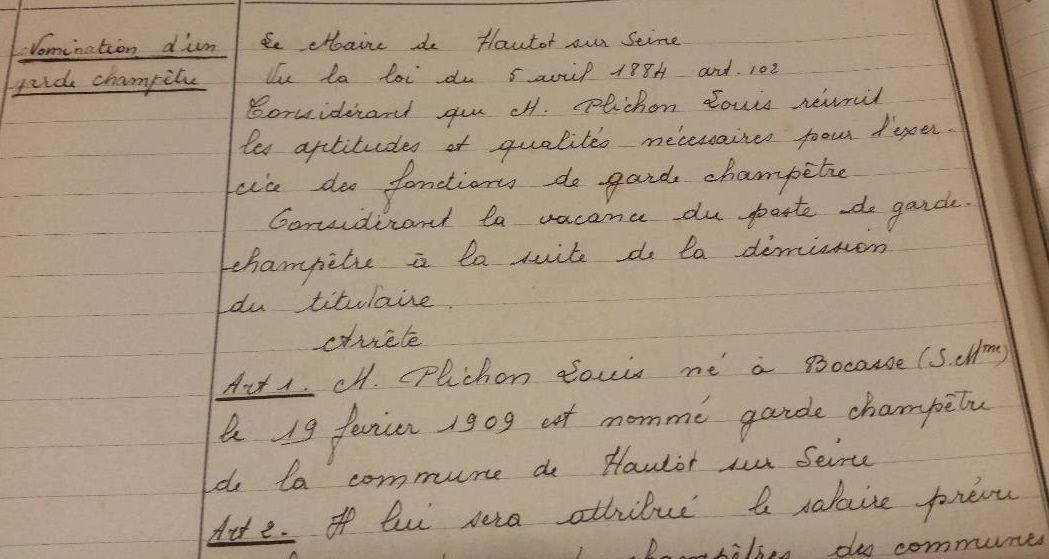 Nomination d'un
garde champêtre
Le Maire de Hautot sur Seine
Vu la loi du 5 avril 1884 art. 102
Considérant que M. Plichon Louis réunit
les aptitudes et qualités nécessaires pour l'exer-
cice des fonctions de garde champêtre
Considérant la vacance du poste de garde-
champêtre à la suite de la démission
du titulaire.
Arrête
Art 1. M. Plichon Louis né à Bocasse (S. Mme)
le 19 février 1909 est nommé garde champêtre
de la commune de Hautot sur Seine
Art 2. Il lui sera attribué le salaire prévu
champêtres des communes